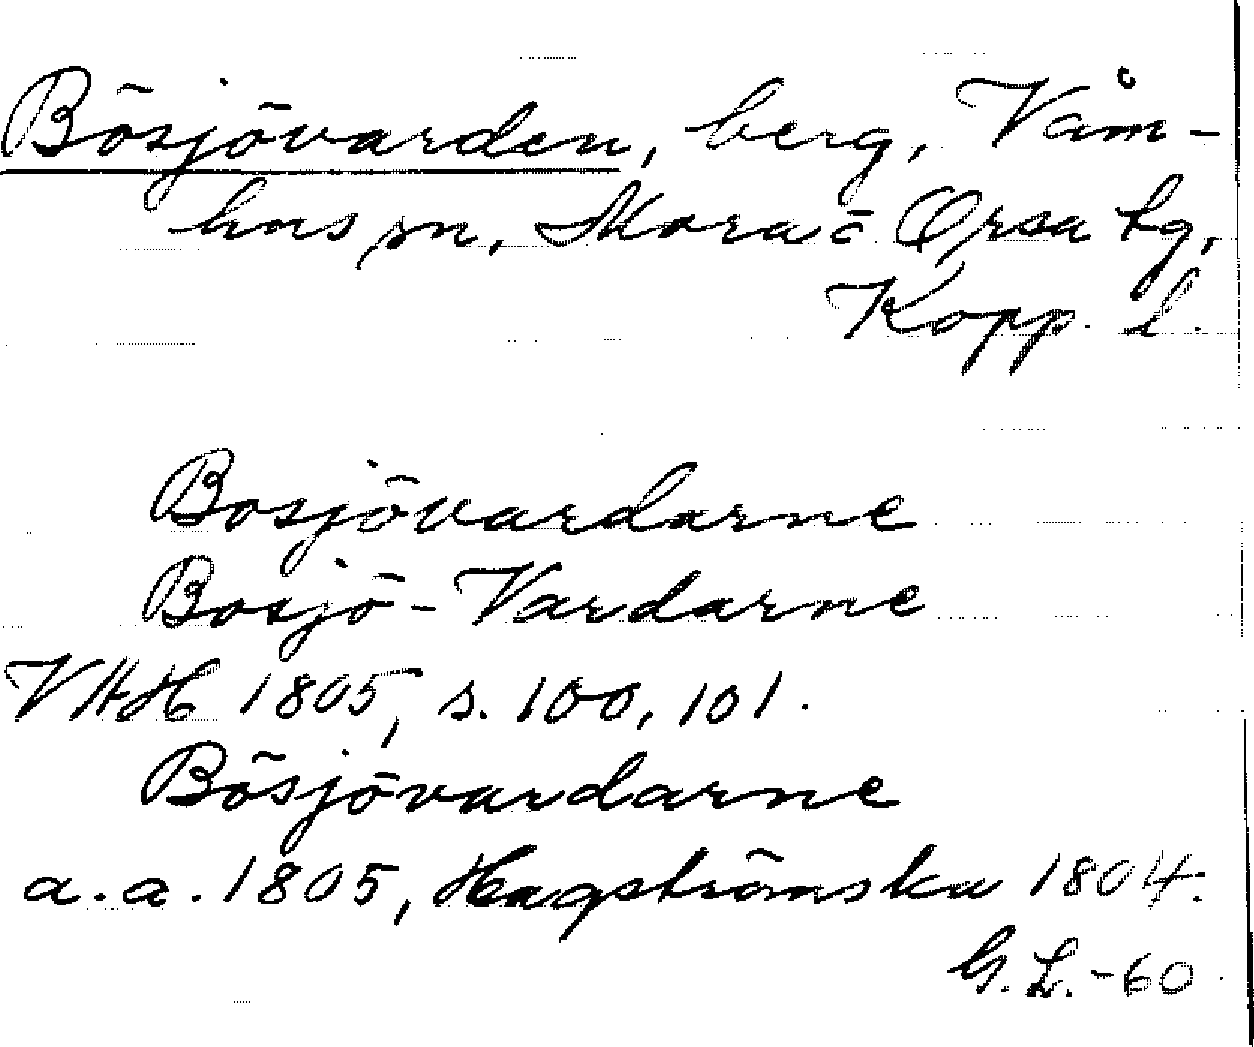 Bösjövarden, berg, Våm-
hus sn, Mora o Orsa tg,
Kopp. l.
Bosjövardarne
Bosjö-Vardarne
VHH 1805, s. 100, 101.
Bösjövardarne
a.a. 1805, Hagströmska 1804.
G.L.-60